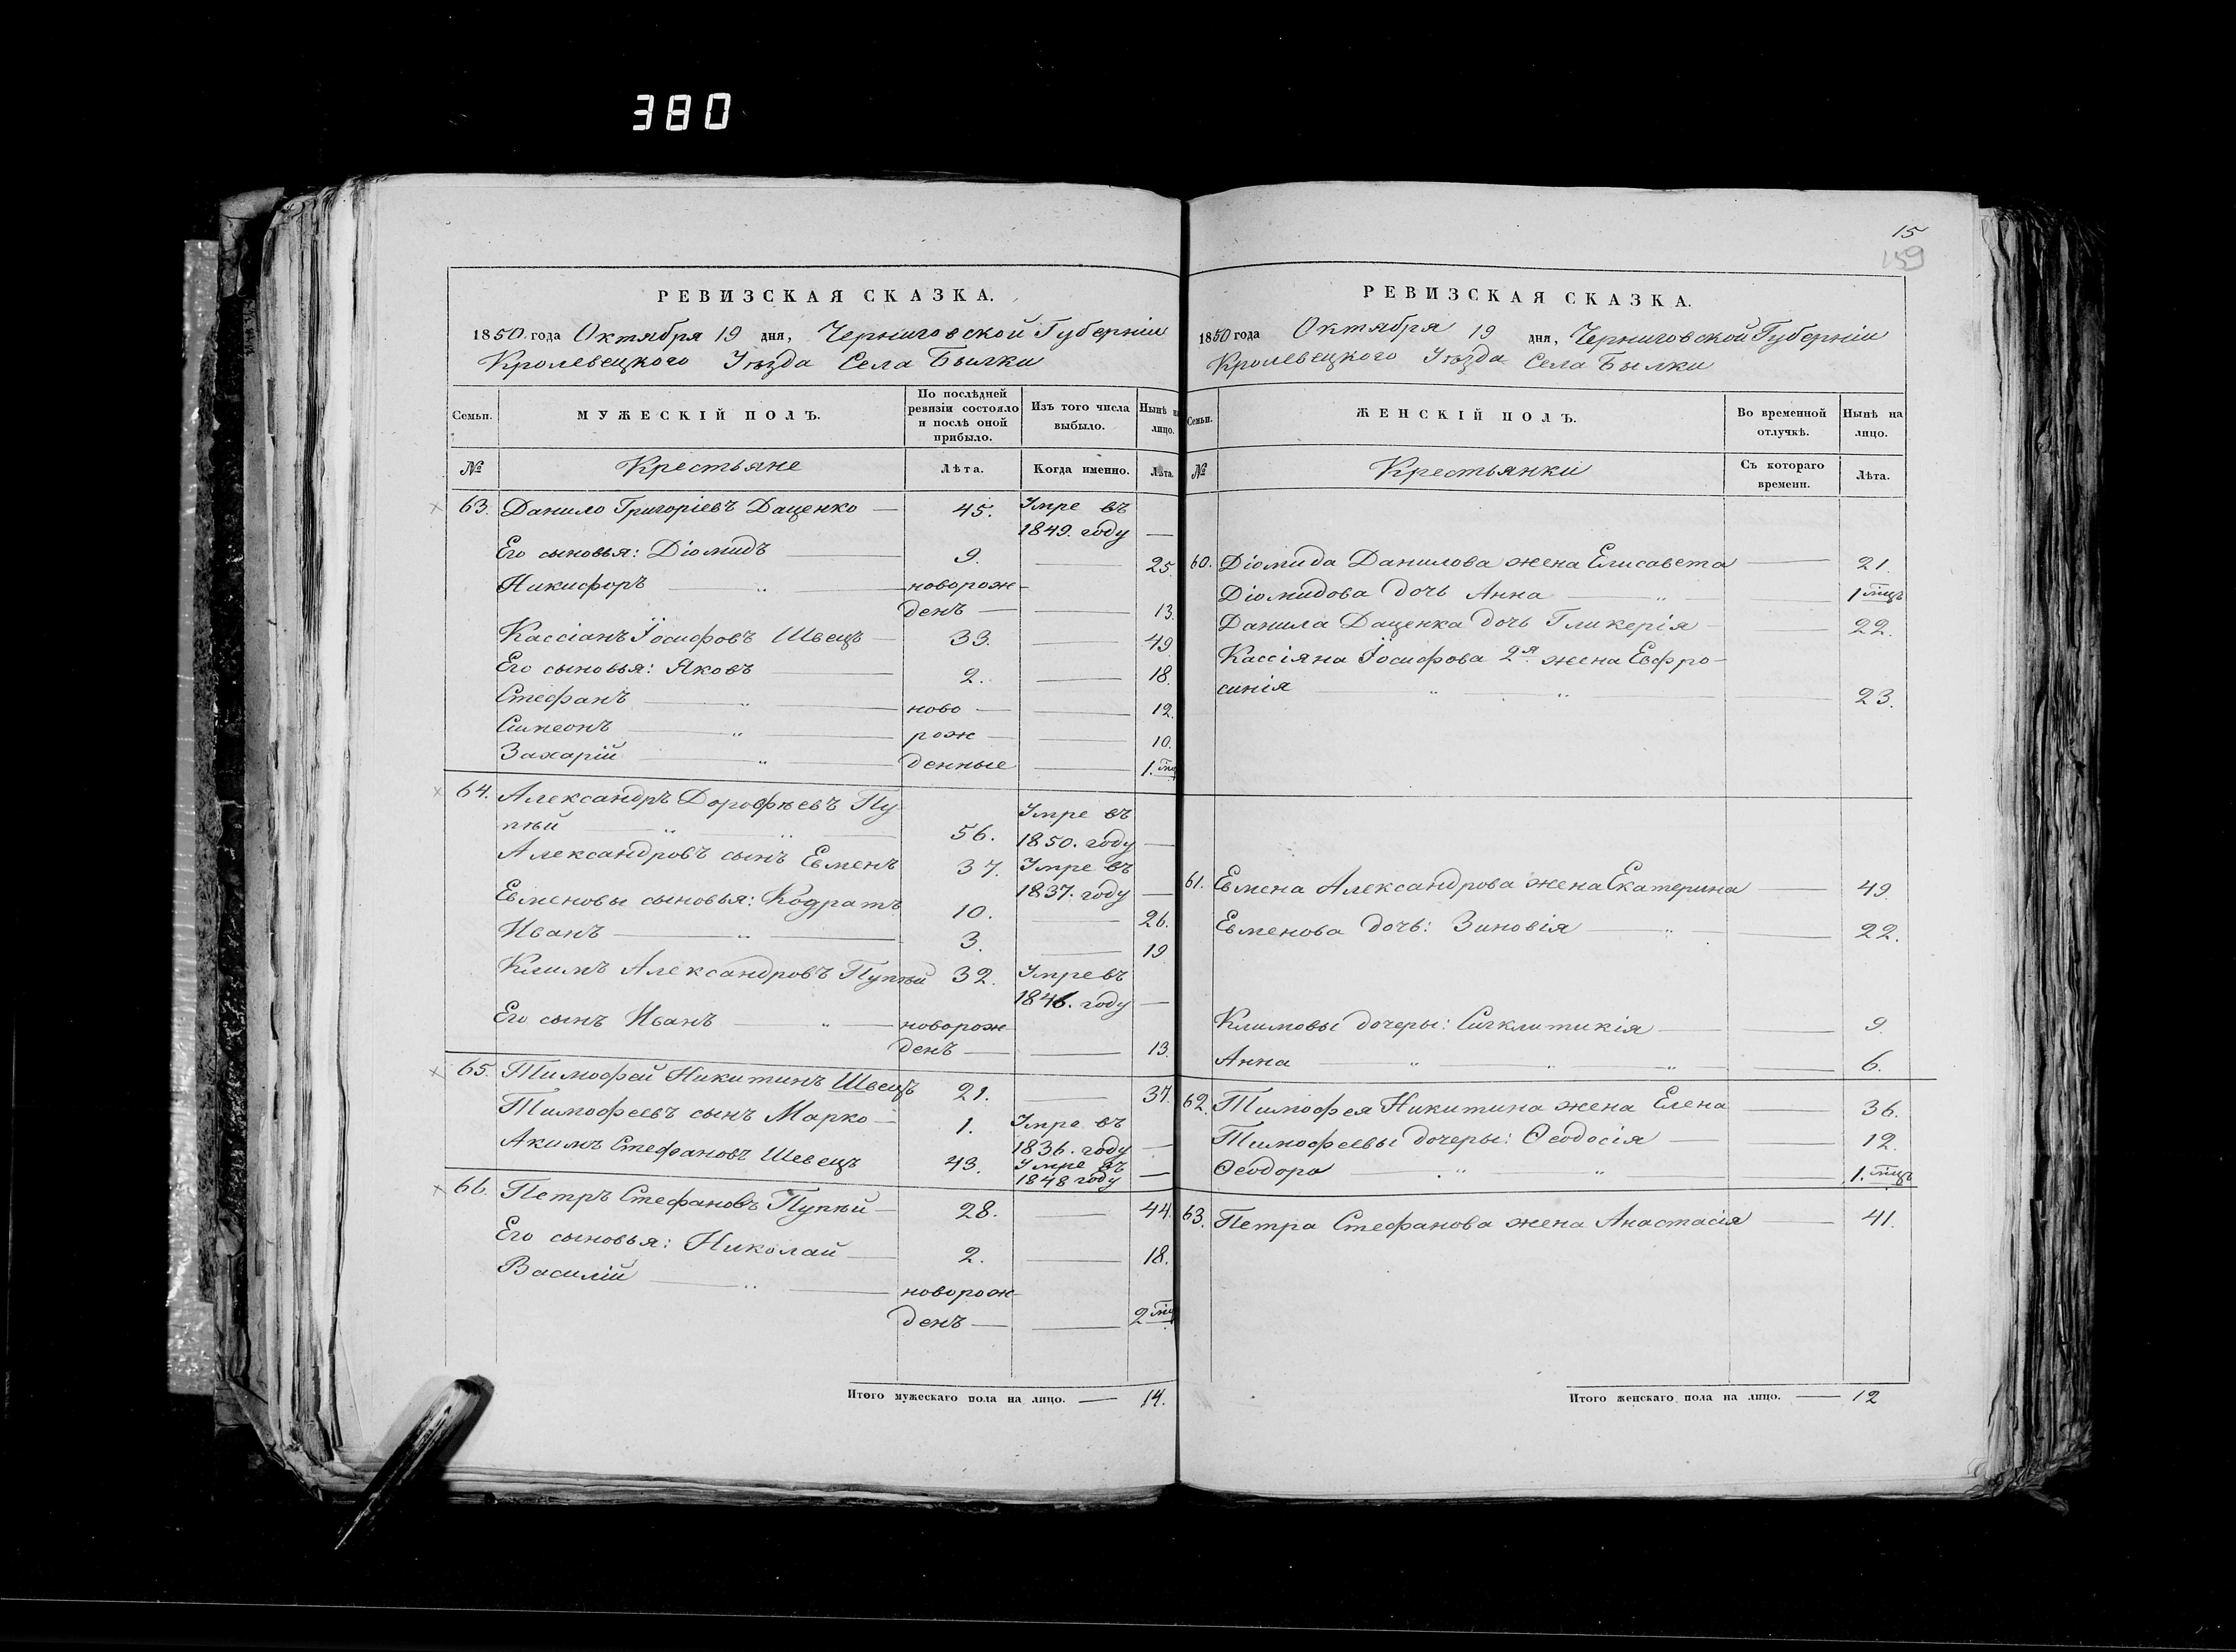 380
РЕВИЗСКАЯ СКАЗКА.
1850. года Октября 19 дня, Черниговской Губерніи
Кролевецкого Уѣзда Села Былки
Семьи. МУЖЕСКІЙ ПОЛЪ. По послѣдней ревизіи состояло и послѣ оной прибыло. Изъ того числа выбыло. Нынѣ на лицо.
№ Крестьяне Лѣта. Когда именно. Лѣта.
63. Данило Григоріевъ Даценко — 45. Умре въ
1849. году —
Его сыновья: Діомидъ — 9. — 25.
Никифоръ — " — новорож-
денъ — — 13.
Кассіанъ Іосифовъ Швецъ — 33. — 49
Его сыновья: Яковъ — 2. — 18.
Стефанъ — " — ново — — 12.
Симеонъ — " — рож — — 10.
Захарій — " — денные — 1. мц
64. Александръ Дорофѣевъ Пу
пѣй — " — " — 56. Умре въ
1850. году —
Александровъ сынъ Евменъ 37. Умре въ
1837. году —
Евменовы сыновья: Кодратъ 10. — 26.
Иванъ — " — 3. — 19
Климъ Александровъ Пупѣй 32. Умре въ
1846. году —
Его сынъ Иванъ — " — новорож-
денъ — — 13.
65. Тимофей Никитинъ Швецъ 21. — 37.
Тимофеевъ сынъ Марко — 1. Умре въ
1836. году —
Акимъ Стефановъ Швецъ 43. Умре въ
1848 году —
66. Петръ Стефановъ Пупѣй — 28. — 44.
Его сыновья: Николай — 2. — 18.
Василій — " — новорож-
денъ — — 2 мц
Итого мужескаго пола на лицо. — 14.
15
159
РЕВИЗСКАЯ СКАЗКА.
1850 года Октября 19 дня, Черниговской Губерніи
Кролевецкого Уѣзда Села Былки
Семьи. ЖЕНСКІЙ ПОЛЪ. Во временной отлучкѣ. Нынѣ на лицо.
№ Крестьянки Съ котораго времени. Лѣта.
60. Діомида Данилова жена Елисавета — 21.
Діомидова дочь Анна — " — — 1 мцъ
Данила Даценка дочь Гликерія — — 22.
Кассіяна Іосифова 2я. жена Евфро-
синія " — " — — 23.
61. Евмена Александрова жена Екатерина — 49.
Евменова дочь: Зиновія — " — — 22.
Климовы дочеры: Сигклитикія — — 9.
Анна — " — " — " — 6.
62. Тимофея Никитина жена Елена — 36.
Тимофеевы дочеры: Ѳеодосія — — 12.
Ѳеодора — " — " — — 1. мцъ
63. Петра Стефанова жена Анастасія — 41.
Итого женскаго пола на лицо. — 12